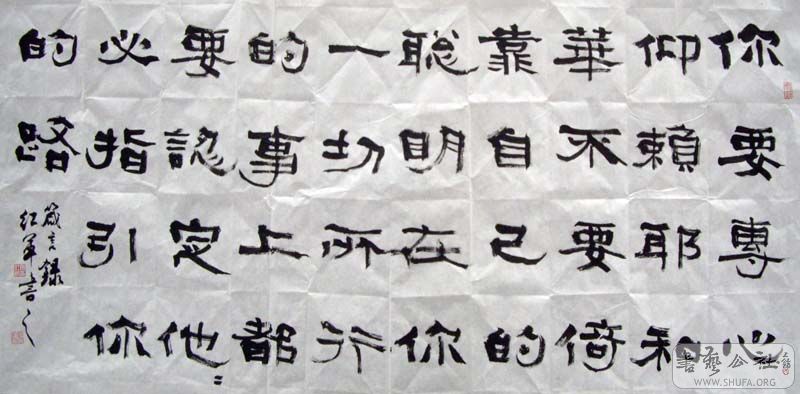 你要專心
仰賴耶和
華不要倚
靠自己的
聪明在你
一切所行
的事上都
要認定他〻
必指引你
的路
箴言録
红軍書之
書藝公社
WWW.SHUFA.ORG